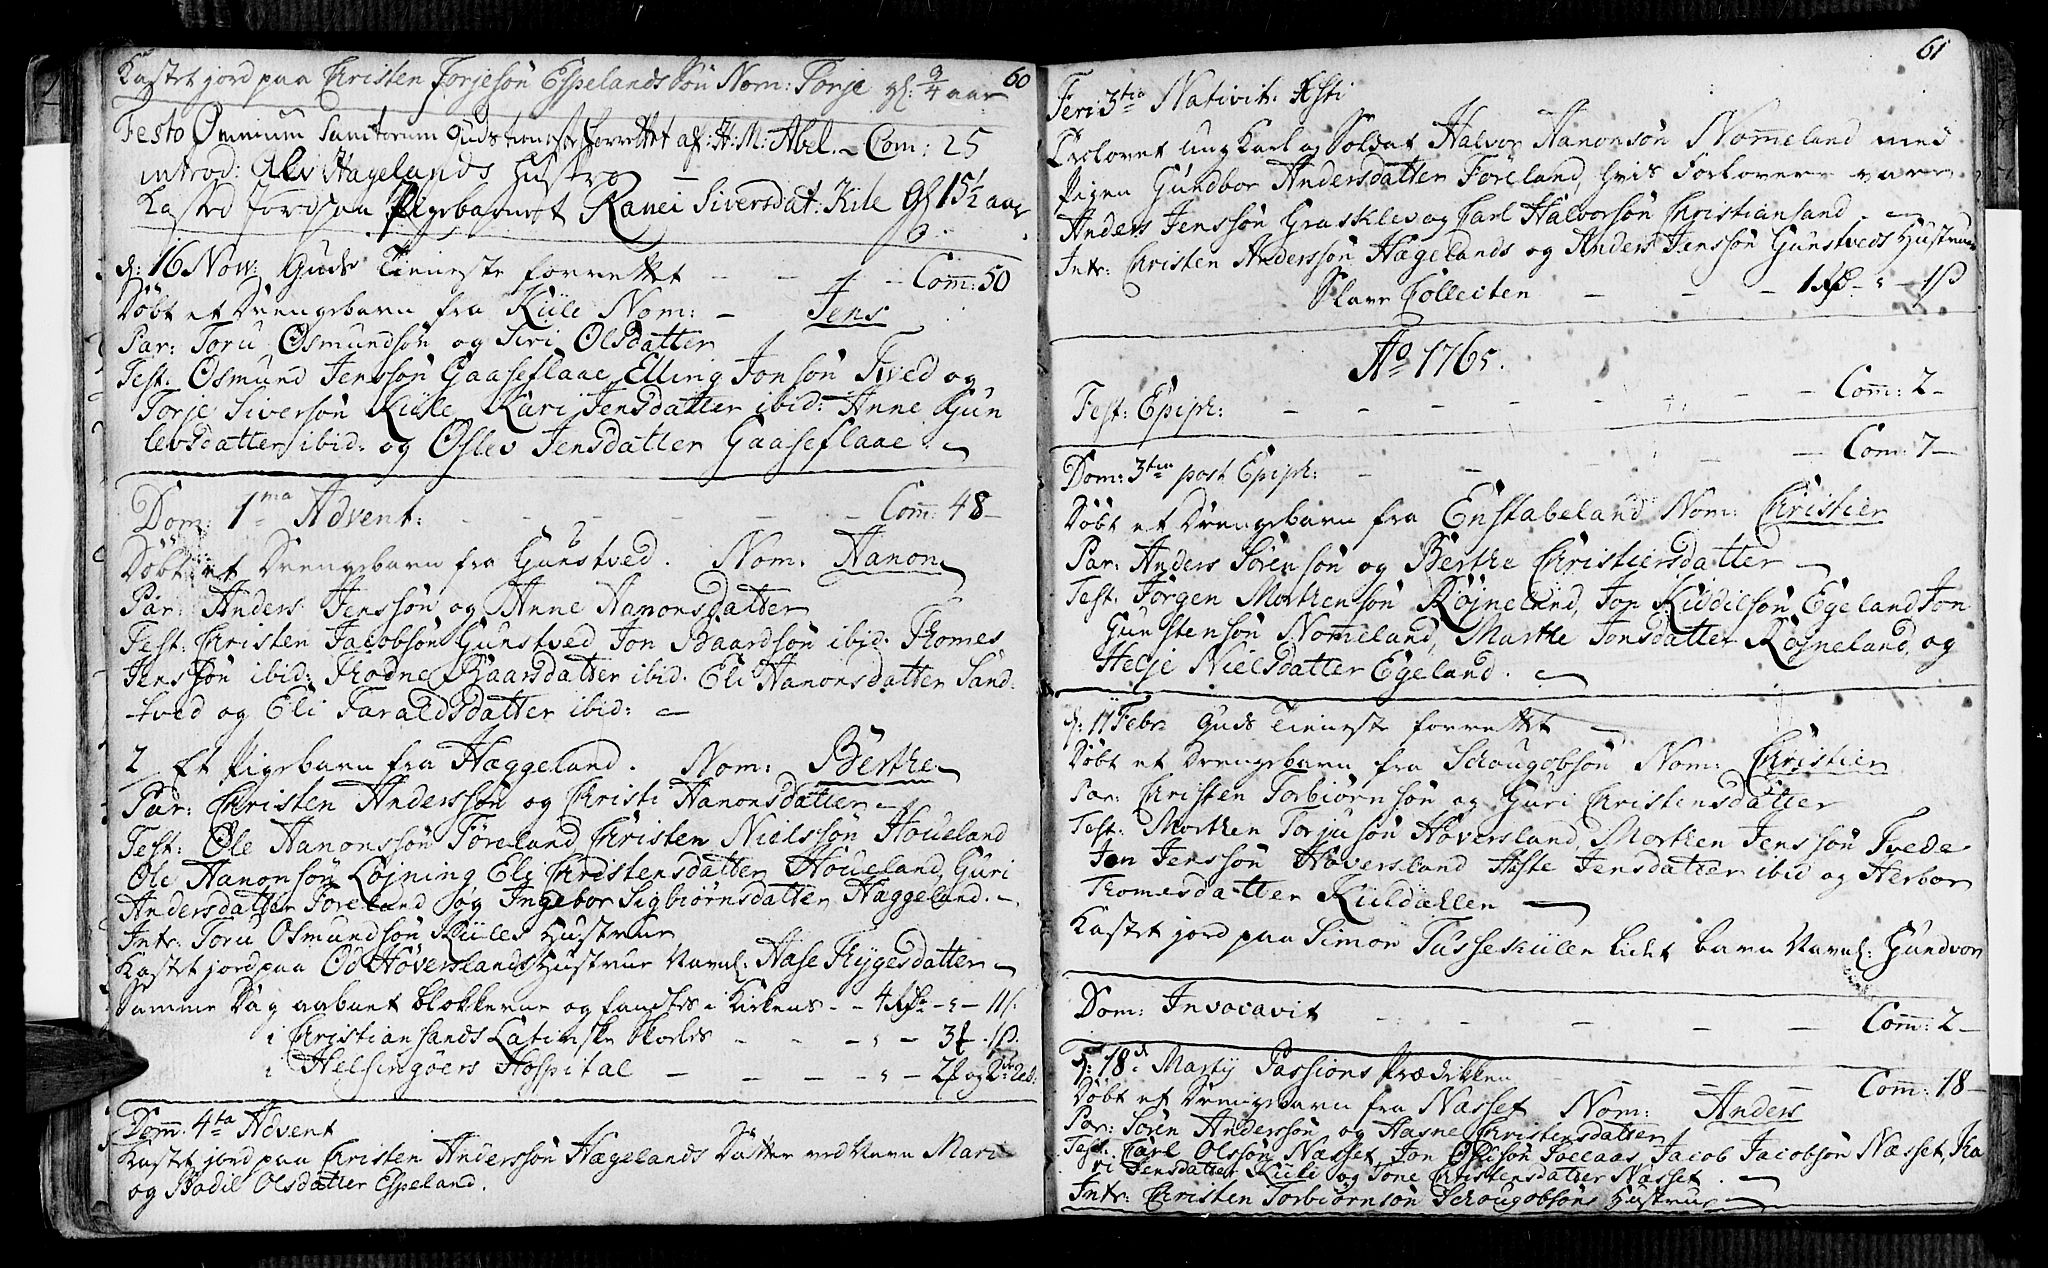 60
Kastet jord paa Christen Torjesøn Espelands Søn Nom: Torje gl: 3/4 aar
Festo Omnium Sanctorum Guds tieneste forrettet af: H: M: Abel. – Com: 25
introd: Alev Hagelands Hustro
Kasted Jord paa Pigebarnet Ranei Siversdat: Kile Gl 15 1/2 aar
d: 16 Nov: Guds Tieneste forrettet – – – Com: 50
Døbt et Drengebarn fra Kiile Nom: – Jens
Par: Toru Osmundsøn og Siri Olsdatter
Test: Osmund Jenssøn Gaaseflaae, Elling Jonsøn Tved og
Torje Siversøn Kiile Kari Jensdatter ibid: Anne Gun
levsdatter ibid: og Oslev Jensdatter Gaaseflaae
Dom: 1ma Advent: – – – – – Com: 48 –
Døbt et Drengebarn fra Gunstved. Nom. Hanon
Par: Anders Jenssøn og Anne Hanonsdatter
Test: Christen Jacobsøn Gunstved Jon Baardsøn ibid: Thomes
Jenssøn ibid: Thodne Baarsdatter ibid. Eli Hanonsdatter Sand
tved og Eli Taraldsdatter ibid:
2 Et Pigebarn fra Hæggeland. Nom: Berthe
Par: Christen Anderssøn og Christi Hanonsdatter
Test: Ole Hanonssøn Føreland, Christen Nielssøn Houeland
Ole Hanonsøn Løjning Eli Christensdatter Houeland, Guri
Andersdatter Føreland og Ingebor Sigbiørnsdatter Haggeland. –
Intr: Toru Osmundsøn Kiiles Hustrue
Kastet jord paa Od Høverslands Hustrue Navnl: Aase Thygesdatter
Samme Dag aabnet blokkerne og fandtes i Kirkens – – 4 – " – 11
i Christiansands Latinske Skoeles – – – " – 3
i Helsingøers Hospital – – – – " – 2
Dom: 4ta Advent
Kastet jord paa Christen Anderssøn Hægelands Datter ved Navn Mari
og Bodil Olsdatter Espeland.
61
Feri: 3tia Nativit: Xsti
Trolovet ung Karl og Soldat Halvor Hanonsøn Nommeland med
Pigen Gundbor Andersdatter Føreland, hvis Forlovere vare
Anders Jenssøn Grasklev og Carl Halvorsøn Christiansand
Intr: Christen Anderssøn Hægelands og Anders Jenssøn Gunstveds Hustruer
Slave Collecten – – – 1
Ao 1765.
Fest: Epiph: – – – – – – – Com: 2 –
Dom: 3tia post Epiph: – – – – – Com: 7 –
Døbt et Drengebarn fra Enstabeland Nom: Christier
Par: Anders Sørensøn og Berthe Christiersdatter
Test: Jørgen Morthensøn Røjneland, Jon Kiddilsøn Egeland Jon
Gunstensøn Nomeland, Marthe Jonsdatter Røjneland, og
Helje Nielsdatter Egeland.
d: 17 Febr. Guds Tieneste forrettet
Døbt et Drengebarn fra Schougobsøn Nom: Christien
Par: Christen Torbiørnsøn og Guri Christensdatter
Test: Morthen Torjusøn Høversland, Morthen Jenssøn Tvede
Jon Jenssøn Høversland Aaste Jensdatter ibid og Herbor
Thomesdatter Kuldallen
Kastet jord paa Simon Tusseküilen lidet barn Navnl: Gundvor
Dom: Invocavit – – – – – Com: 2 –
d: 18de Martij Passions Prædikken – – – – Com: 18 –
Døbt et Drengebarn fra Næsset Nom: Anders
Par: Søren Anderssøn og Aasne Christensdatter
Test: Carl Olssøn Næsset, Jon Jaccaas, Jacob Jacobsøn Næsset, Ka
ri Jensdatter Kiile og Tone Christensdatter Næsset
Intr: Christen Torbiørnsøn Schougobsøns Hustrue